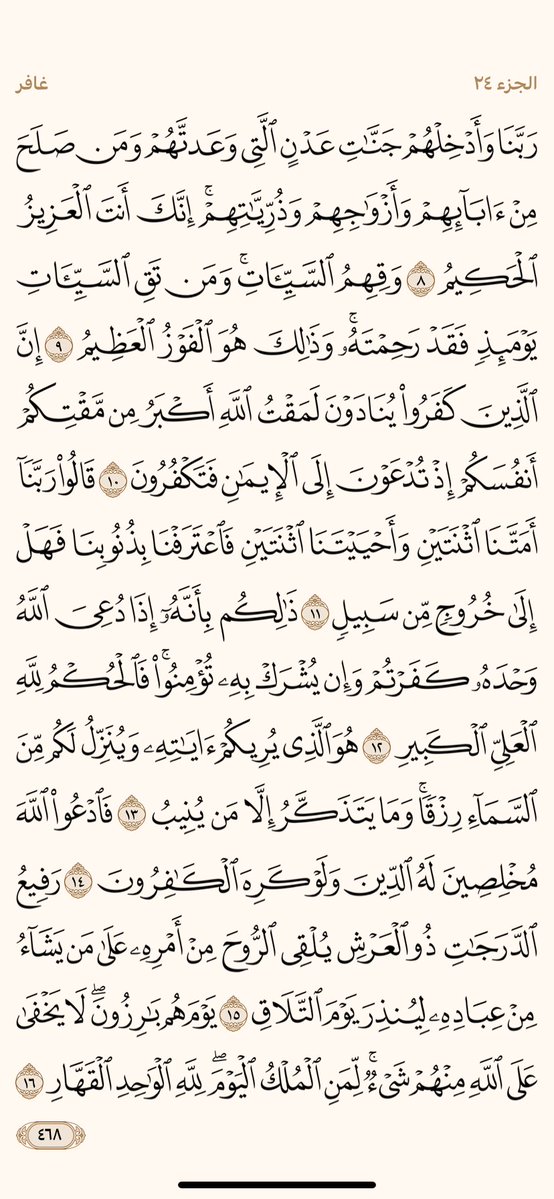 الجزء ٢٤
غافر
رَبَّنَا وَأَدۡخِلۡهُمۡ جَنَّٰتِ عَدۡنٍ ٱلَّتِي وَعَدتَّهُمۡ وَمَن صَلَحَ
مِنۡ ءَابَآئِهِمۡ وَأَزۡوَٰجِهِمۡ وَذُرِّيَّٰتِهِمۡۚ إِنَّكَ أَنتَ ٱلۡعَزِيزُ
ٱلۡحَكِيمُ ٨ وَقِهِمُ ٱلسَّيِّـَٔاتِۚ وَمَن تَقِ ٱلسَّيِّـَٔاتِ
يَوۡمَئِذٖ فَقَدۡ رَحِمۡتَهُۥۚ وَذَٰلِكَ هُوَ ٱلۡفَوۡزُ ٱلۡعَظِيمُ ٩ إِنَّ
ٱلَّذِينَ كَفَرُواْ يُنَادَوۡنَ لَمَقۡتُ ٱللَّهِ أَكۡبَرُ مِن مَّقۡتِكُمۡ
أَنفُسَكُمۡ إِذۡ تُدۡعَوۡنَ إِلَى ٱلۡإِيمَٰنِ فَتَكۡفُرُونَ ١٠ قَالُواْ رَبَّنَآ
أَمَتَّنَا ٱثۡنَتَيۡنِ وَأَحۡيَيۡتَنَا ٱثۡنَتَيۡنِ فَٱعۡتَرَفۡنَا بِذُنُوبِنَا فَهَلۡ
إِلَىٰ خُرُوجٖ مِّن سَبِيلٖ ١١ ذَٰلِكُم بِأَنَّهُۥٓ إِذَا دُعِيَ ٱللَّهُ
وَحۡدَهُۥ كَفَرۡتُمۡ وَإِن يُشۡرَكۡ بِهِۦ تُؤۡمِنُواْۚ فَٱلۡحُكۡمُ لِلَّهِ
ٱلۡعَلِيِّ ٱلۡكَبِيرِ ١٢ هُوَ ٱلَّذِي يُرِيكُمۡ ءَايَٰتِهِۦ وَيُنَزِّلُ لَكُم مِّنَ
ٱلسَّمَآءِ رِزۡقٗاۚ وَمَا يَتَذَكَّرُ إِلَّا مَن يُنِيبُ ١٣ فَٱدۡعُواْ ٱللَّهَ
مُخۡلِصِينَ لَهُ ٱلدِّينَ وَلَوۡ كَرِهَ ٱلۡكَٰفِرُونَ ١٤ رَفِيعُ
ٱلدَّرَجَٰتِ ذُو ٱلۡعَرۡشِ يُلۡقِي ٱلرُّوحَ مِنۡ أَمۡرِهِۦ عَلَىٰ مَن يَشَآءُ
مِنۡ عِبَادِهِۦ لِيُنذِرَ يَوۡمَ ٱلتَّلَاقِ ١٥ يَوۡمَ هُم بَٰرِزُونَۖ لَا يَخۡفَىٰ
عَلَى ٱللَّهِ مِنۡهُمۡ شَيۡءٞۚ لِّمَنِ ٱلۡمُلۡكُ ٱلۡيَوۡمَۖ لِلَّهِ ٱلۡوَٰحِدِ ٱلۡقَهَّارِ ١٦
٤٦٨